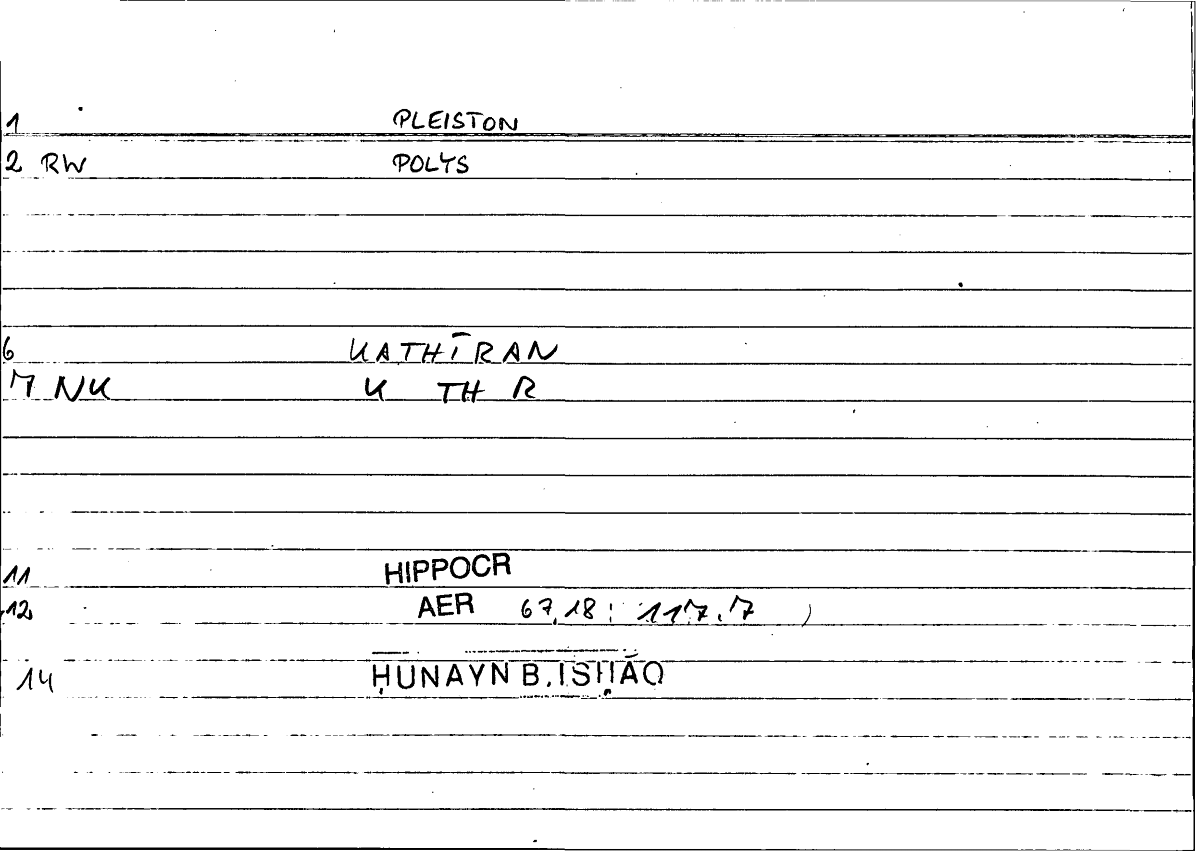 1 PLEISTON
2 RW POLYS
6 KATHĪRAN
7 NK K TH R
11 HIPPOCR
12 AER 67,18 : 117.7 )
14 ḤUNAYN B. ISḤĀQ